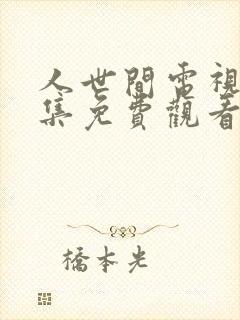 人世間電視
集免費觀看
橋本光